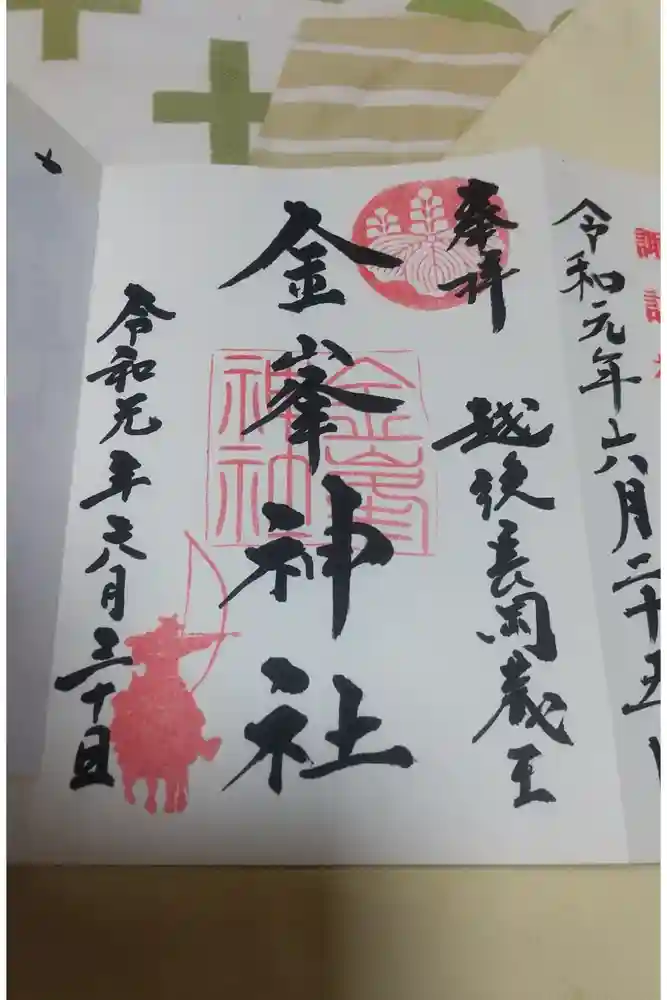 諏訪
令和元年六月二十五日
奉拝
越後長岡蔵王
金峯神社
金峯
神社
令和元年六月三十日